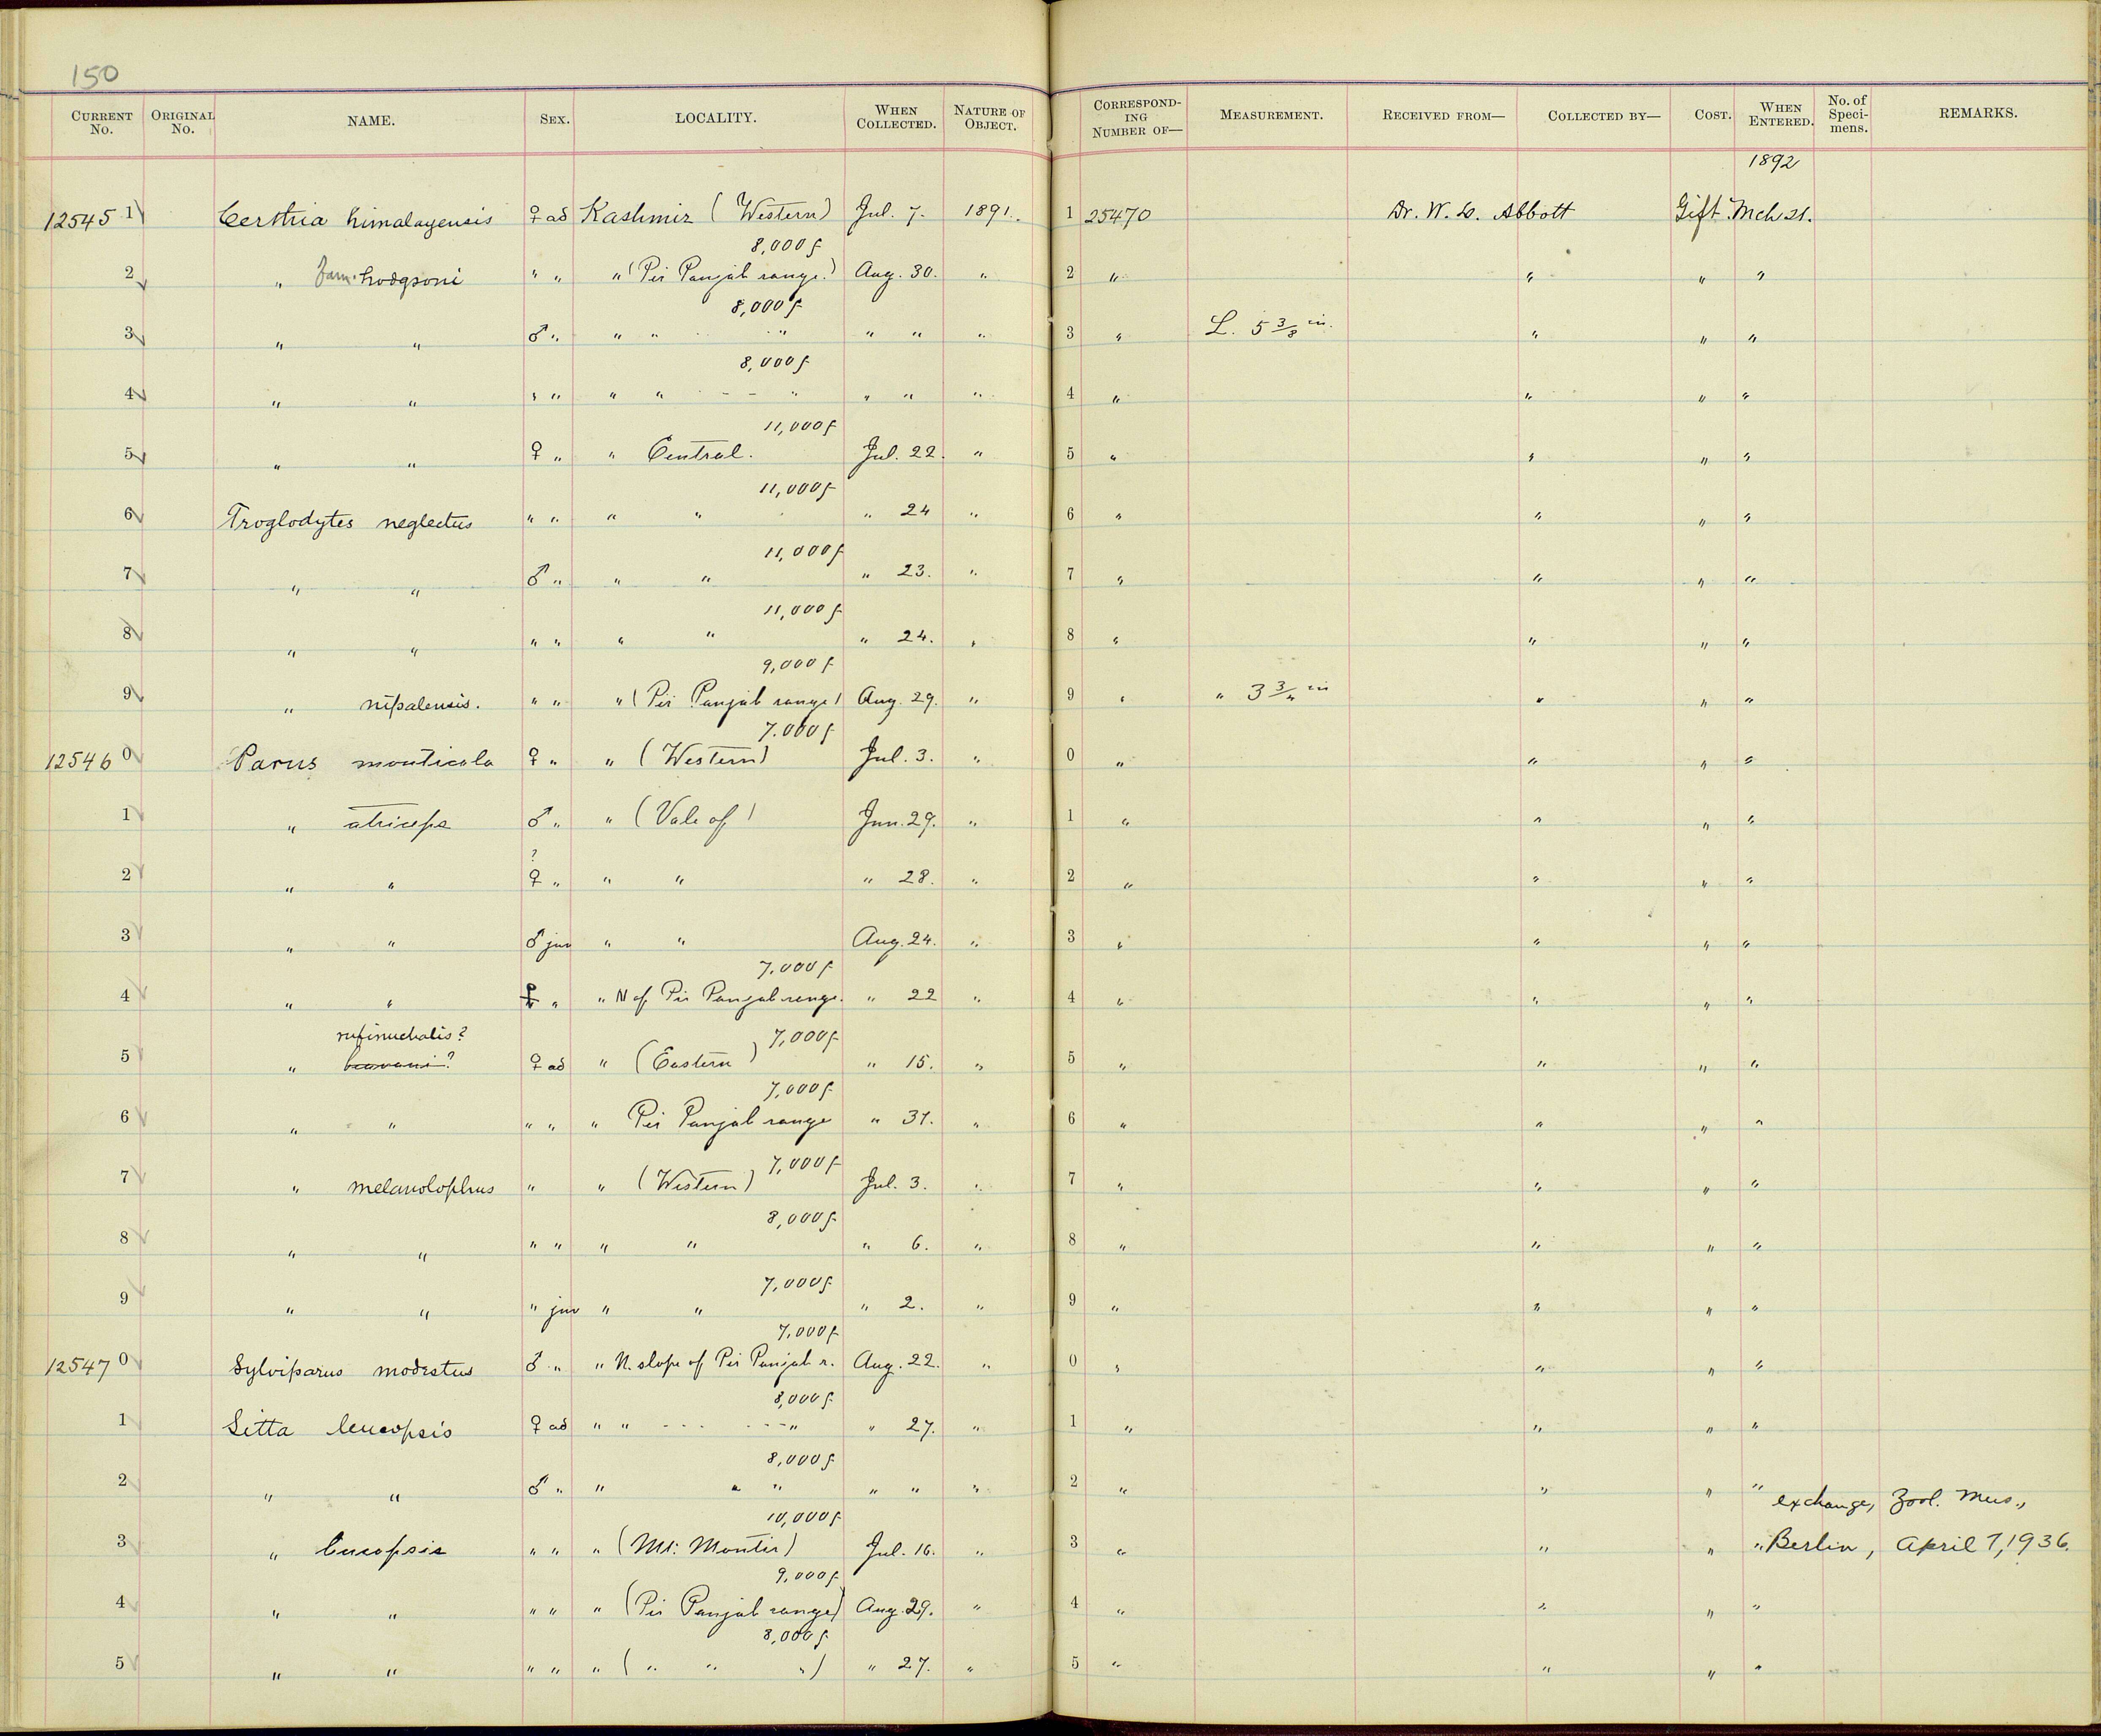 150
CURRENT No. ORIGINAL No. NAME. SEX. LOCALITY. WHEN COLLECTED. NATURE OF OBJECT. CORRESPONDING NUMBER OF— MEASUREMENT. RECEIVED FROM— COLLECTED BY— COST. WHEN ENTERED. No. of Specimens. REMARKS.
1892
12545 1 Certhia himalayensis ♀ ad Kashmir (Western) Jul. 7. 1891. 1 25470 Dr. W. L. Abbott Gift. Mch 21.
8,000 f
2 " hodgsoni " " " (Pir Panjab range.) Aug. 30. " 2 " " " "
8,000 f
3 " " ♂ " " " " " " " 3 " L. 5 3/8 in. " " "
8,000 f
4 " " " " " " " " " " 4 " " " "
11,000 f
5 " " ♀ " " Central. Jul. 22. " 5 " " " "
11,000 f
6 Troglodytes neglectus " " " " " 24 " 6 " " " "
11,000 f
7 " " ♂ " " " " 23. " 7 " " " "
11,000 f
8 " " " " " " " 24. " 8 " " " "
9,000 f
9 " nipalensis. " " " (Pir Panjab range) Aug. 29. " 9 " " 3 3/4 in " " "
7.000 f
12546 0 Parus monticola ♀ " " (Western) Jul. 3. " 0 " " " "
1 " atriceps ♂ " " (Vale of) Jun. 29. " 1 " " " "
?
2 " " ♀ " " " " 28. " 2 " " " "
3 " " ♂ juv " " Aug. 24. " 3 " " " "
7,000 f
4 " " " " N of Pir Panjab range. " 22 " 4 " " " "
rufinuchalis? 7,000 f
5 " beavani? ♀ ad " (Eastern) " 15. " 5 " " " "
7,000 f
6 " " " " " Pir Panjab range " 31. " 6 " " " "
7,000 f
7 " melanolophus " " (Western) Jul. 3. " 7 " " " "
8,000 f
8 " " " " " " " 6. " 8 " " " "
7,000 f
9 " " " juv " " " 2. " 9 " " " "
7,000 f
12547 0 Sylviparus modestus ♂ " " N. slope of Pir Panjab r. Aug. 22. " 0 " " " "
8,000 f
1 Sitta leucopsis ♀ ad " " " " 27. " 1 " " " "
8,000 f
2 " " ♂ " " " " " " " 2 " " " "
exchange, Zool. Mus.,
10,000 f
3 " leucopsis " " " (Mt. ) Jul. 16. " 3 " " " " Berlin, April 7, 1936.
9,000 f
4 " " " " " (Pir Panjab range) Aug. 29. " 4 " " " "
8,000 f
5 " " " " " ( " " " ) " 27. " 5 " " " "